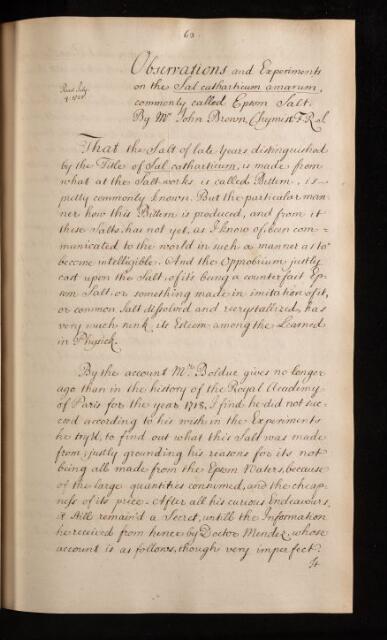 63
Observations and Experiments
on the Sal catharticum amarum,
commonly called Epsom Salt.
By Mr John Brown Chymist F.R.S.
Read July
1723
That the Salt of late Years distinguished
by the Title of Sal catharticum, is made from
what at the Salt-works is called Bittern, is
pretty commonly known. But the particular man-
ner how this Bittern is produced, and from it
these Salts, has not yet, as I know of, been com-
municated to the world in such a manner as to
become intelligible. And the Opprobrium justly
cast upon the Salt, of its being a counterfeit Ep-
som Salt, or something made in imitation of it,
or common Salt dissolved and recrystallized, has
very much sunk its Esteem among the Learned
in Physick.
By the account Mr Bolduc gives no longer
ago than in the history of the Royal Academy
of Paris for the year 1718, I find he did not suc-
ceed according to his wish in the Experiments
he try'd, to find out what this Salt was made
from, justly grounding his reasons for its not
being all made from the Epsom Waters, because
of the large quantities consumed, and the cheap-
ness of its price. After all his curious Endeavours,
it still remain'd a Secret, untill the Information
he received from hence by Doctor Mendez, whose
account is as follows, though very imperfect.
It